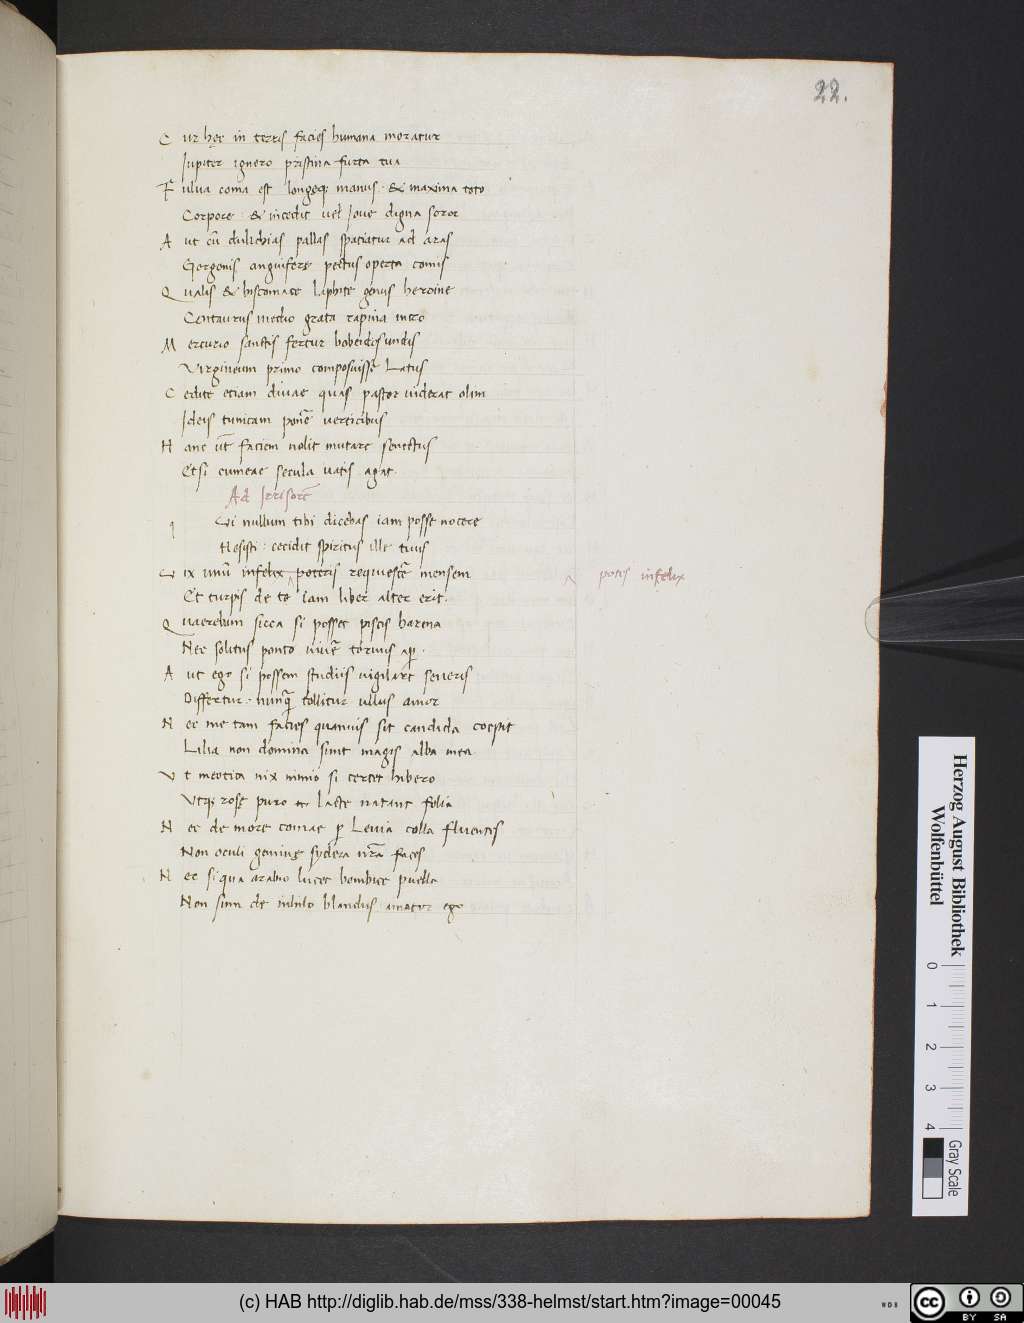 22.
C ur hęc in terris facies humana moratur
Jupiter ignero pristina furta tua
F ulua coma est longeq; manus · & maxima toto
Corpore : & incedit uel Joue digna soror
A ut cũ dulichias pallas spatiatur ad aras
Gorgonis anguiferę pectus operta comis
Q ualis & hiscomace liphite genus heroine
Centaurus medio grata rapina mero
M ercurio sanctis fertur bobeidis undis
Virgineum primo composuisse Latus
C edite etiam diuae quas pastor uiderat olim
Jdeis tunicam ponẽ uerticibus
H anc ut̃ faciem nolit mutare senectus
Etsi cumeae secula uatis agat.
Ad Irrisorẽ
q Ui nullum tibi dicebas iam posse nocere
Hesisti : cecidit spiritus ille tuus
U ix unũ infelix poteris requiescẽ mensem
potis infelix
Et turpis de te iam liber alter erit.
Q uaerebam sicca si posset piscis harena
Nec solitus ponto uiuẽ toruus ap̃.
A ut ego si possem studiis uigilare seueris
Differtur · nunq̃ tollitur ullus amor
N ec me tam facies quamuis sit candida coepit
Lilia non domina sunt magis alba mea
V t meotica nix minio si certet hibero
Utq; rosę puro lacte natant folia
N ec de more comae p̱ Leuia colla fluentis
Non oculi geminę sydera nr̃a faces
N ec siqua arabio lucet bombice puella
Non sum de nihilo blandus amator ego
Herzog August Bibliothek
Wolfenbüttel
0 1 2 3 4
Gray Scale
(c) HAB http://diglib.hab.de/mss/338-helmst/start.htm?image=00045
WDB
CC BY SA